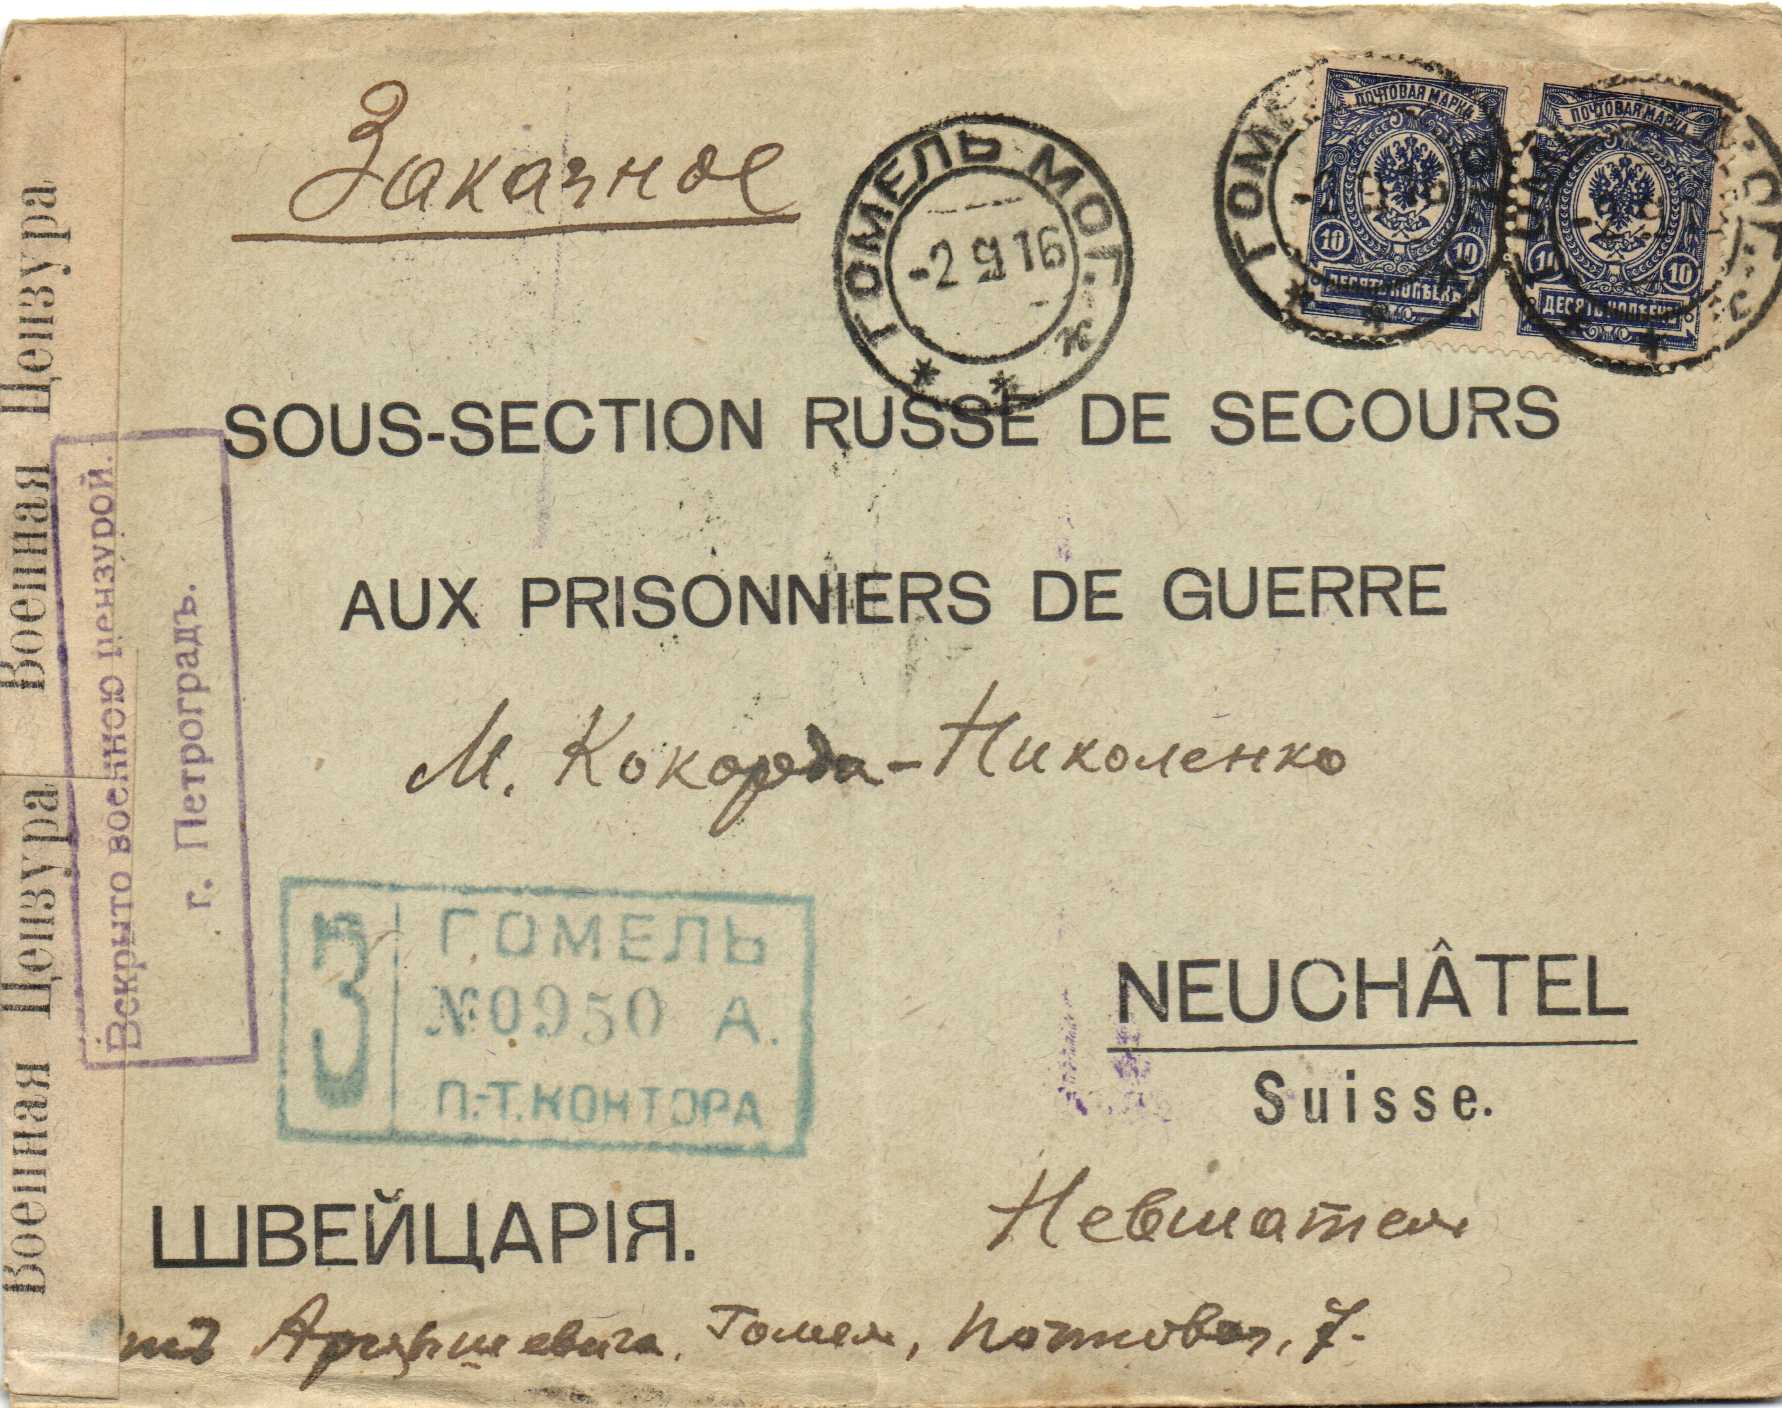 Заказное
ГОМЕЛЬ МОГ.
-2 9 16
ПОЧТОВАЯ МАРКА
10 10
ДЕСЯТЬ КОПѢЕКЪ
ПОЧТОВАЯ МАРКА
10 10
ДЕСЯТЬ КОПѢЕКЪ
SOUS-SECTION RUSSE DE SECOURS
AUX PRISONNIERS DE GUERRE
М. Кокорда-Николенко
Военная Цензура
Военная Цензура
Вскрыто военною цензурой.
г. Петроградъ.
З
ГОМЕЛЬ
№ 0950 А.
П.-Т. КОНТОРА
NEUCHÂTEL
Suisse.
ШВЕЙЦАРІЯ.
Невшатель
отъ Арцышевича, Гомель,